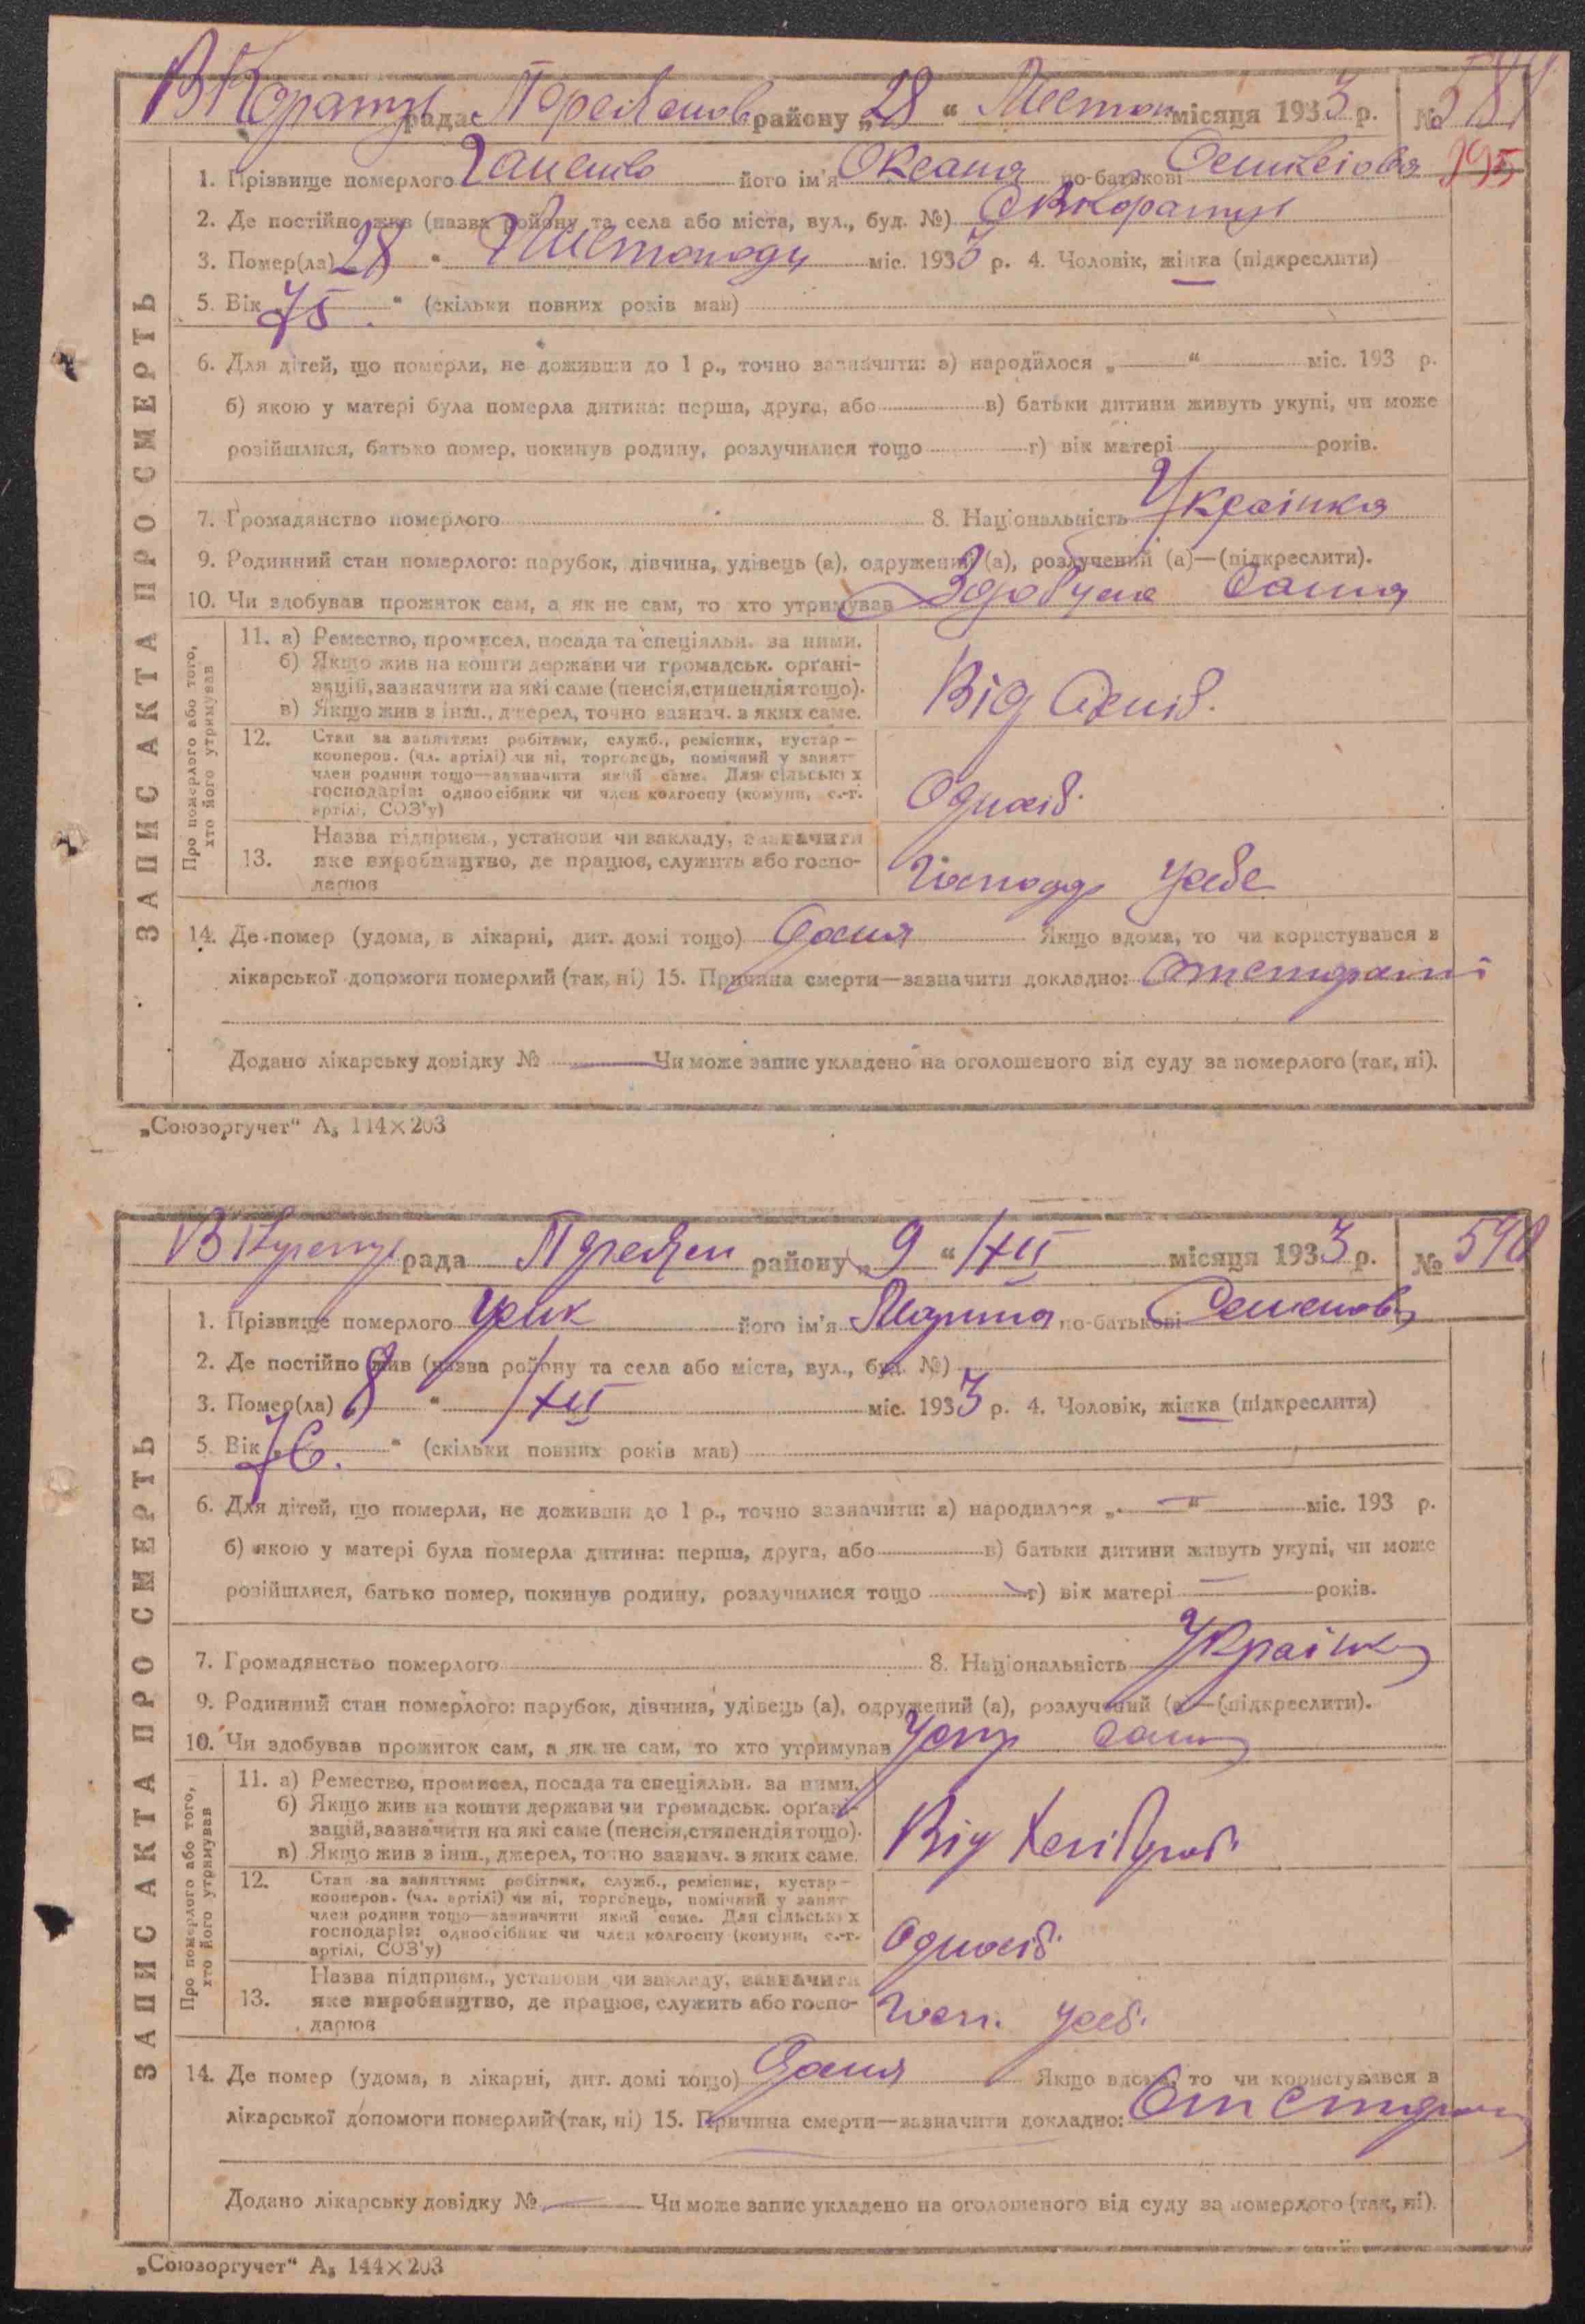 рада району „28“ місяця 1933 р. №
195
1. Прізвище померлого його ім'я Оксана по-батькові
2. Де постійно жив (назва району та села або міста, вул., буд. №)
3. Помер(ла) 28 “ Листопаду міс. 1933 р. 4. Чоловік, жінка (підкреслити)
5. Вік „75.“ (скільки повних років мав)
6. Для дітей, що померли, не доживши до 1 р., точно зазначити: а) народилося „ “ міс. 193 р.
б) якою у матері була померла дитина: перша, друга, або в) батьки дитини живуть укупі, чи може
розійшлися, батько помер, покинув родину, розлучилися тощо г) вік матері років.
7. Громадянство померлого 8. Національність Українка
9. Родинний стан померлого: парубок, дівчина, удівець (а), одружений (а), розлучений (а)—(підкреслити).
10. Чи здобував прожиток сам, а як не сам, то хто утримував сама
ЗАПИС АКТА ПРО СМЕРТЬ
Про померлого або того, хто його утримував
11. а) Ремество, промисел, посада та спеціяльн. за ними.
б) Якщо жив на кошти держави чи громадськ. орґані-
зацій, зазначити на які саме (пенсія, стипендія тощо).
в) Якщо жив з інш., джерел, точно зазнач. з яких саме.
Від
12. Стан за заняттям: робітник, служб., ремісник, кустар—
кооперов. (чл. артілі) чи ні, торговець, помічний у занят—
член родини тощо—зазначити який саме. Для сільських
господарів: одноосібник чи член колгоспу (комуни, с.-г.
артілі, СОЗ'у)
Одноосіб.
13. Назва підприєм., установи чи закладу, зазначити
яке виробництво, де працює, служить або госпо-
дарює
Господар у себе
14. Де помер (удома, в лікарні, дит. домі тощо) Дома Якщо вдома, то чи користувався в
лікарської допомоги померлий (так, ні) 15. Причина смерти—зазначити докладно: От старости
Додано лікарську довідку № Чи може запис укладено на оголошеного від суду за померлого (так, ні).
„Союзоргучет“ А₅ 114×203
рада району „9“ /XII місяця 1933 р. № 590
1. Прізвище померлого його ім'я по-батькові Семенов
2. Де постійно жив (назва району та села або міста, вул., буд. №)
3. Помер(ла) 8 “ /XII міс. 1933 р. 4. Чоловік, жінка (підкреслити)
5. Вік „76.“ (скільки повних років мав)
6. Для дітей, що померли, не доживши до 1 р., точно зазначити: а) народилося „ — “ міс. 193 р.
б) якою у матері була померла дитина: перша, друга, або в) батьки дитини живуть укупі, чи може
розійшлися, батько помер, покинув родину, розлучилися тощо г) вік матері — років.
7. Громадянство померлого 8. Національність Українка
9. Родинний стан померлого: парубок, дівчина, удівець (а), одружений (а), розлучений (а)—(підкреслити).
10. Чи здобував прожиток сам, а як не сам, то хто утримував сама
ЗАПИС АКТА ПРО СМЕРТЬ
Про померлого або того, хто його утримував
11. а) Ремество, промисел, посада та спеціяльн. за ними.
б) Якщо жив на кошти держави чи громадськ. орґані-
зацій, зазначити на які саме (пенсія, стипендія тощо).
в) Якщо жив з інш., джерел, точно зазнач. з яких саме.
Від
12. Стан за заняттям: робітник, служб., ремісник, кустар—
кооперов. (чл. артілі) чи ні, торговець, помічний у занят—
член родини тощо—зазначити який саме. Для сільських
господарів: одноосібник чи член колгоспу (комуни, с.-г.
артілі, СОЗ'у)
Одноосіб.
13. Назва підприєм., установи чи закладу, зазначити
яке виробництво, де працює, служить або госпо-
дарює
Госп. у себ.
14. Де помер (удома, в лікарні, дит. домі тощо) Дома Якщо вдома, то чи користувався в
лікарської допомоги померлий (так, ні) 15. Причина смерти—зазначити докладно: От старости
Додано лікарську довідку № — Чи може запис укладено на оголошеного від суду за померлого (так, ні).
„Союзоргучет“ А₅ 144×203